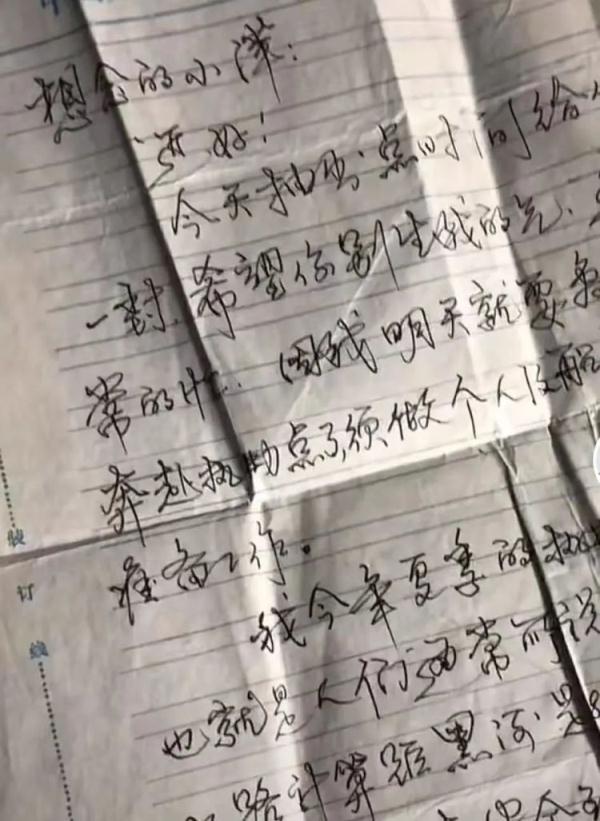 想念的小萍：
还好！
今天抽出点时间给
一封，希望你别生我的气，
常的忙．因我明天就要
奔赴执勤点了，须做个人
准备工作。
我今年夏季的执
也就是人们通常所说
路 计算 黑河
装
订
线